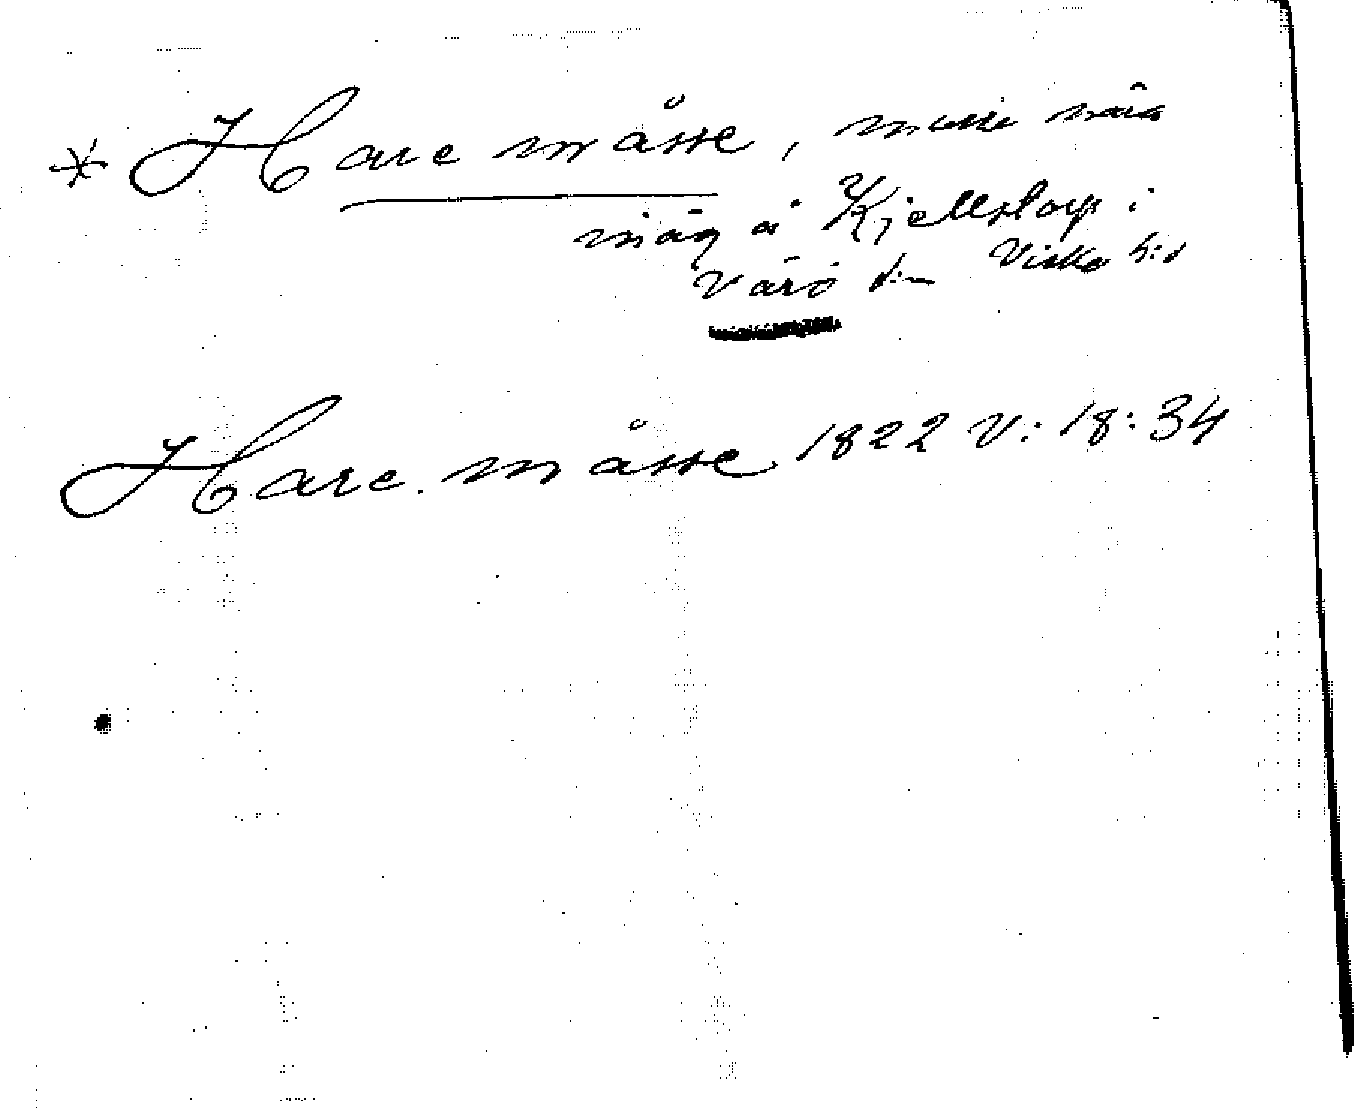 * Hare måsse, mosse nära
mäg å Kjellstorp i
Värö sn Viske h:d
Hare måsse 1822 V: 18: 34